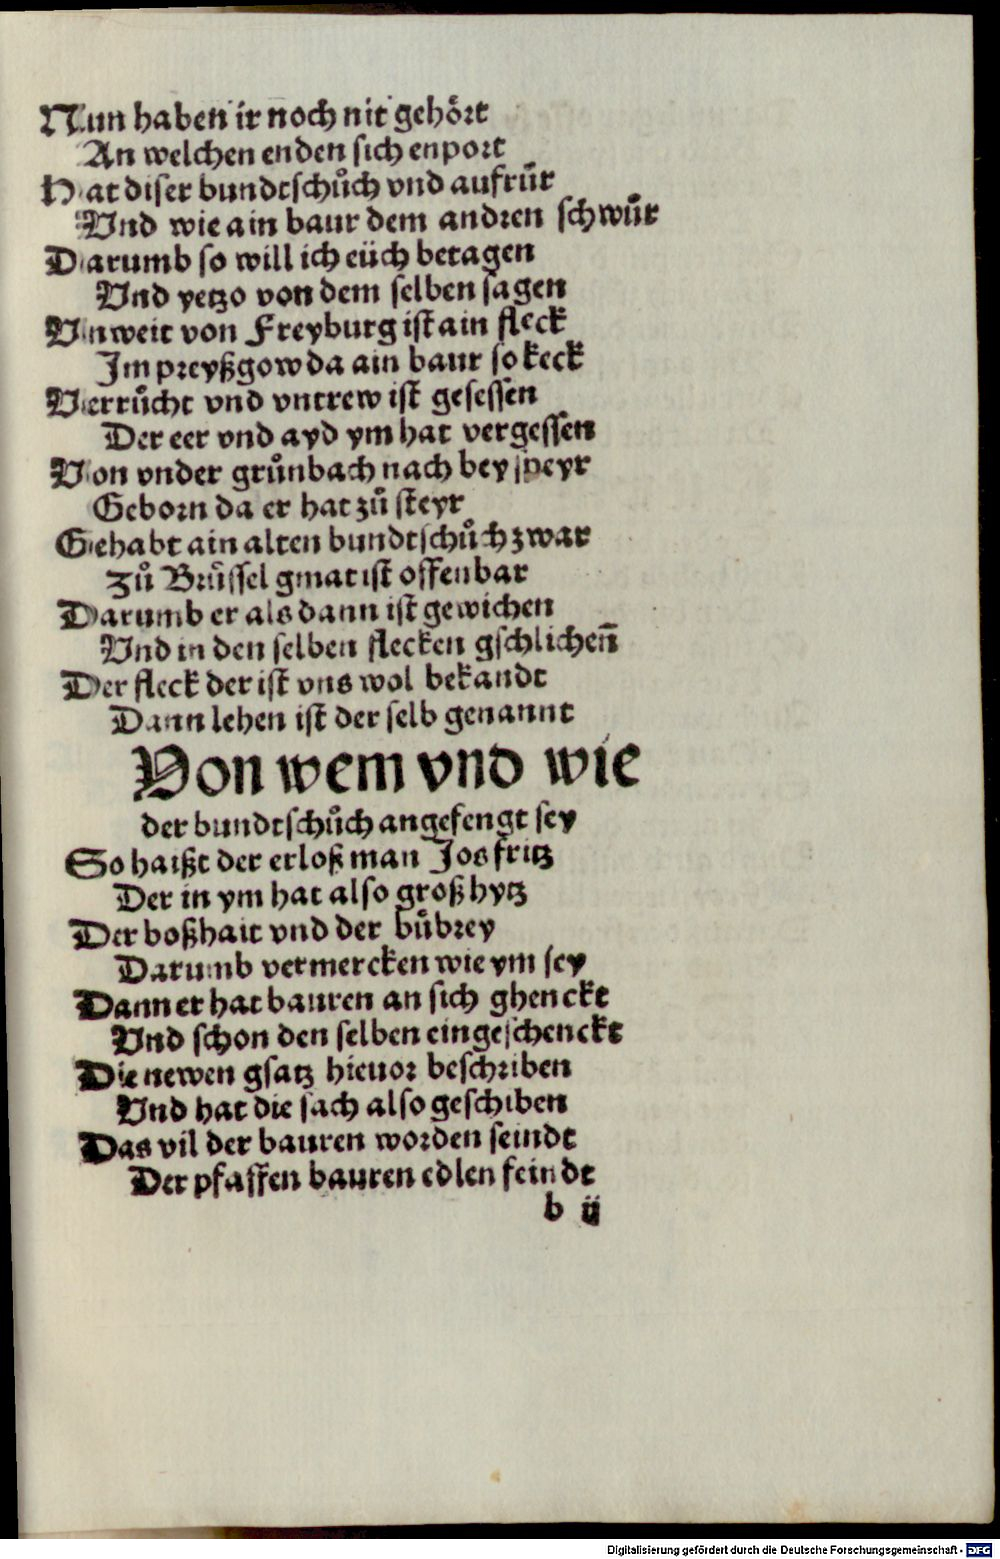 Nun haben ir noch nit gehoͤrt
An welchen enden sich enport
Hat diser bundtschuͦch vnd aufruͦr
Vnd wie ain baur dem andren schwuͦr
Darumb so will ich eüch betagen
Vnd yetzo von dem selben sagen
Vnweit von Freyburg ist ain fleck
Im preyßgow da ain baur so keck
Verruͦcht vnd vntrew ist gesessen
Der eer vnd ayd ym hat vergessen
Von vnder gruͦnbach nach bey speyr
Geborn da er hat zuͦ steyr
Gehabt ain alten bundtschuͦch zwar
Zuͦ Bruͦssel gmat ist offenbar
Darumb er als dann ist gewichen
Vnd in den selben flecken gschlichen̄
Der fleck der ist vns wol bekandt
Dann lehen ist der selb genannt
Von wem vnd wie
der bundtschuͦch angefengt sey
So haißt der erloß man Jos fritz
Der in ym hat also groß hytz
Der boßhait vnd der buͦbrey
Darumb vermercken wie ym sey
Dann er hat bauren an sich ghenckt
Vnd schon den selben eingeschenckt
Die newen gsatz hieuor beschriben
Vnd hat die sach also geschiben
Das vil der bauren worden seindt
Der pfaffen bauren edlen feindt
b ij
Digitalisierung gefördert durch die Deutsche Forschungsgemeinschaft - DFG